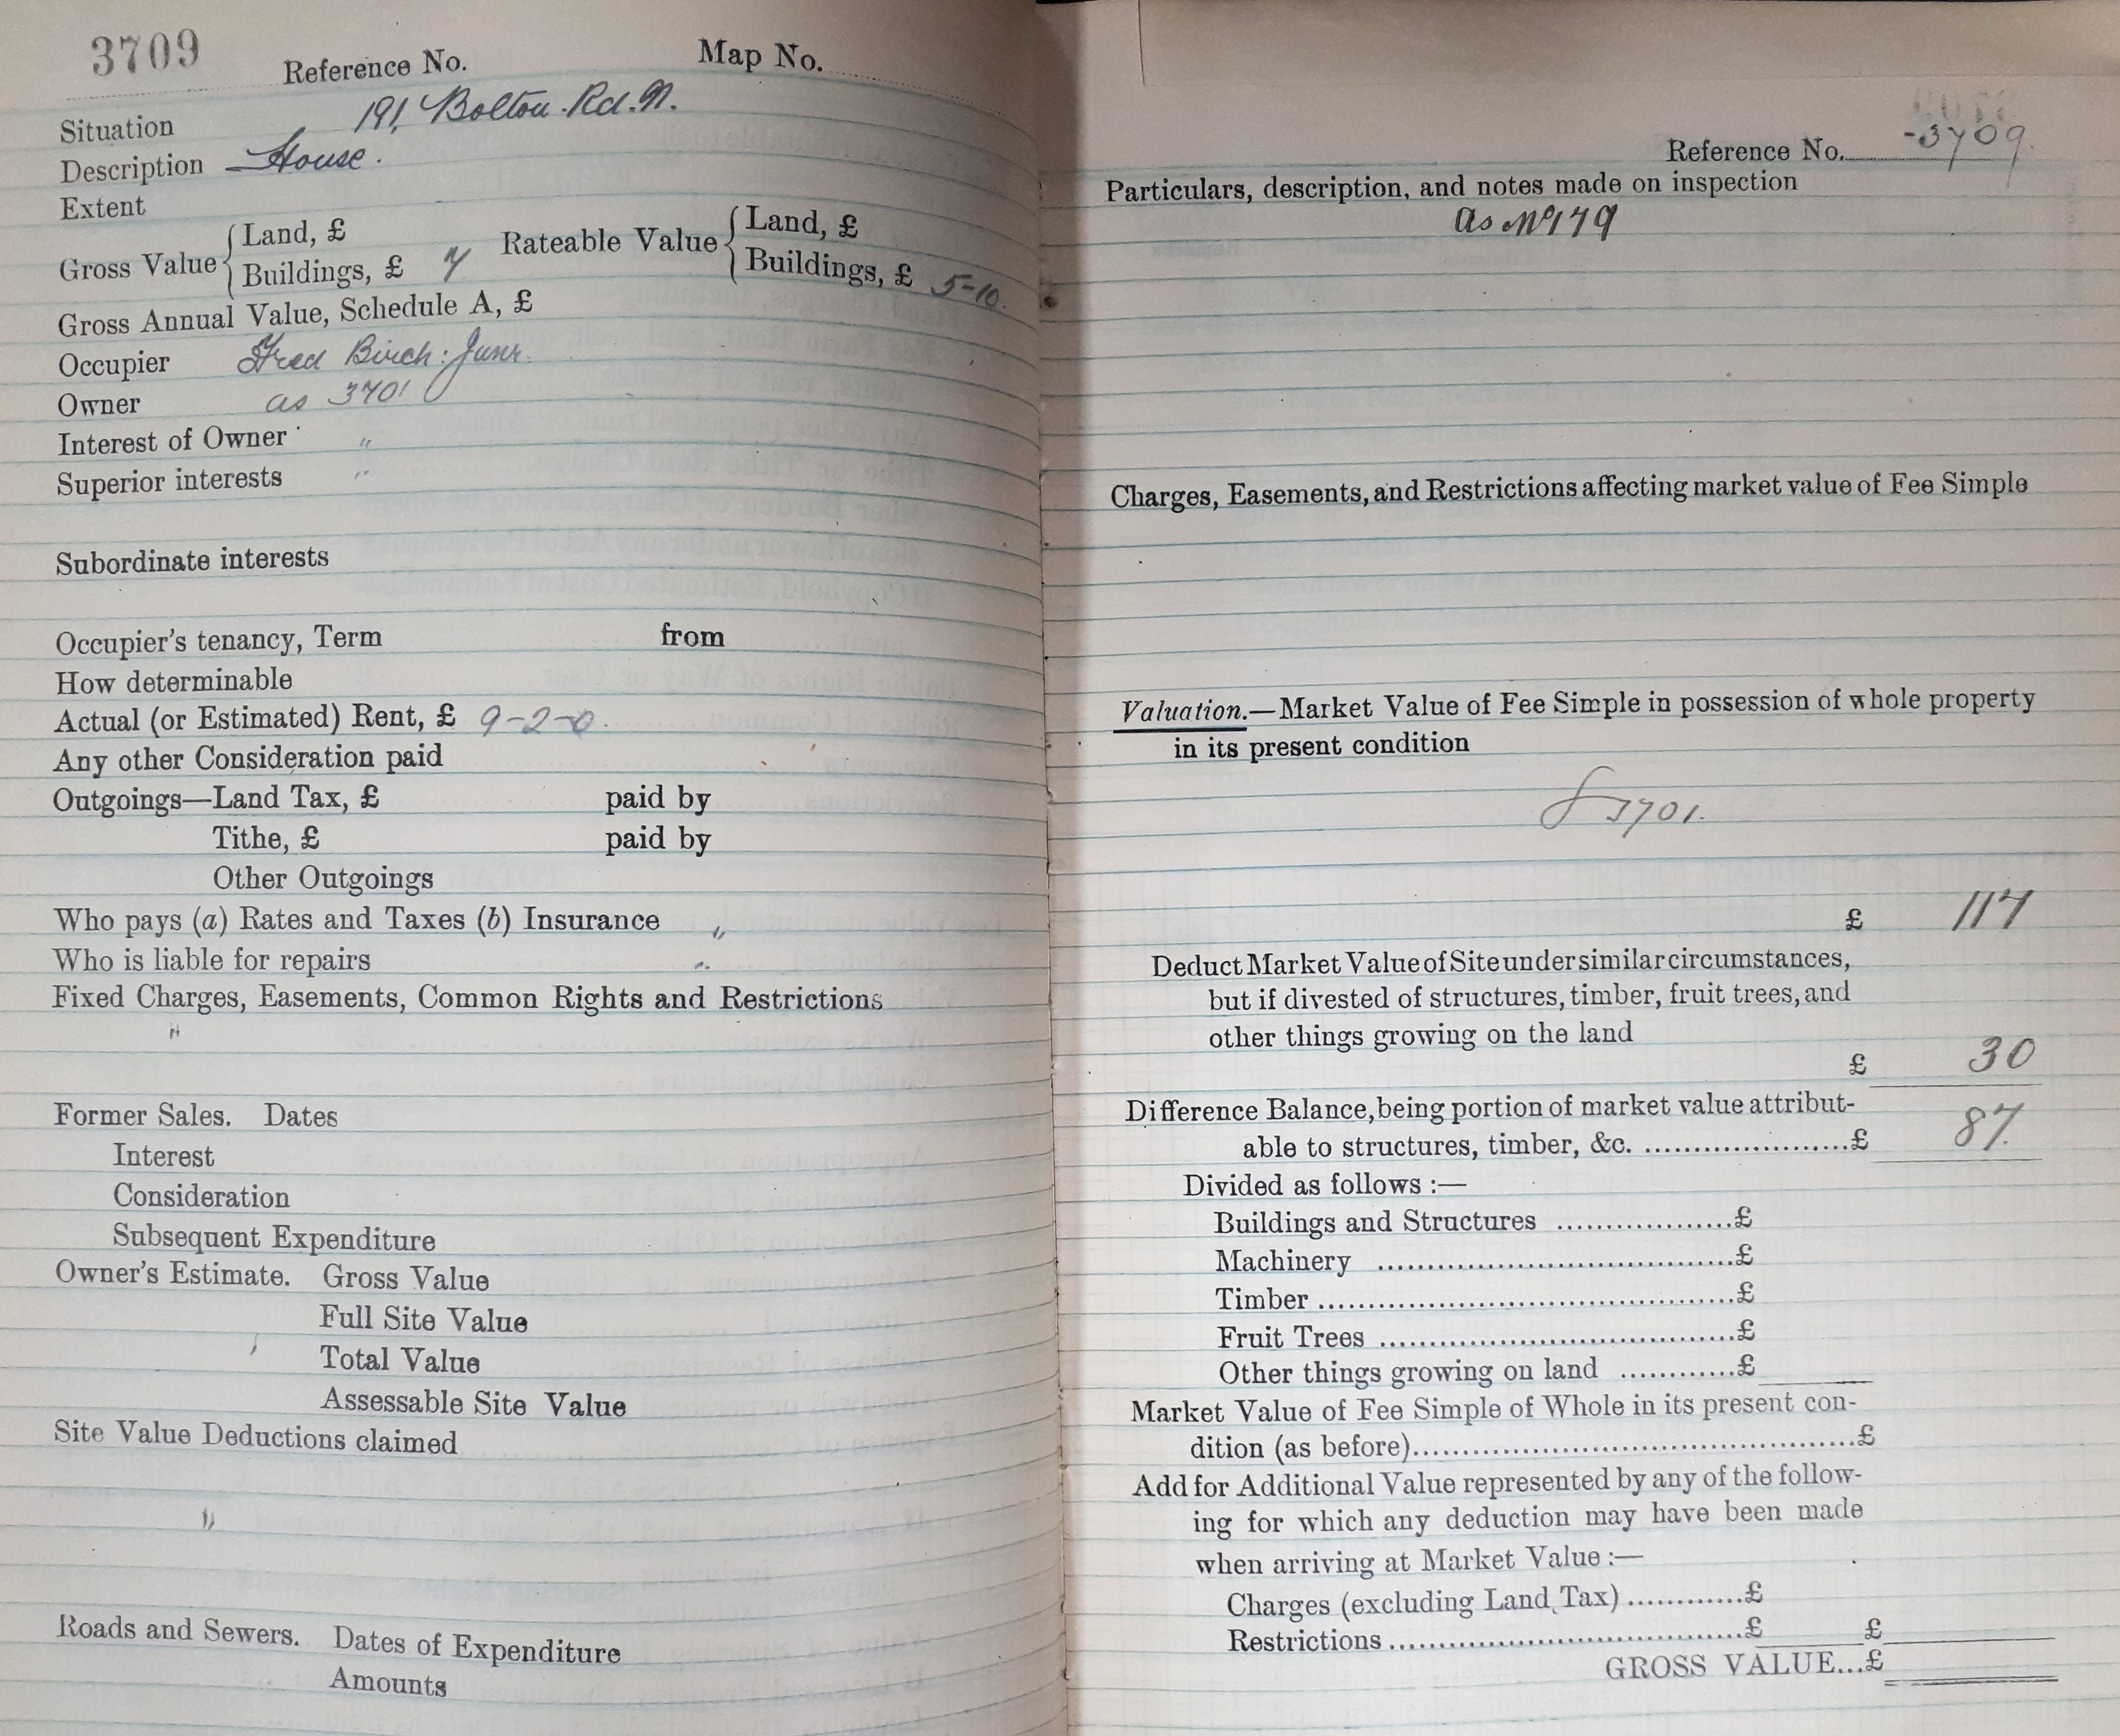 3709
Reference No. Map No.
Situation 191, Bolton Rd. N.
Description House.
Extent
Gross Value { Land, £
Buildings, £ 7
Rateable Value { Land, £
Buildings, £ 5-10.
Gross Annual Value, Schedule A, £
Occupier Fred Birch: Junr.
Owner as 3701
Interest of Owner "
Superior interests "
Subordinate interests
Occupier's tenancy, Term from
How determinable
Actual (or Estimated) Rent, £ 9-2-0.
Any other Consideration paid
Outgoings—Land Tax, £ paid by
Tithe, £ paid by
Other Outgoings
Who pays (a) Rates and Taxes (b) Insurance "
Who is liable for repairs "
Fixed Charges, Easements, Common Rights and Restrictions
"
Former Sales. Dates
Interest
Consideration
Subsequent Expenditure
Owner's Estimate. Gross Value
Full Site Value
Total Value
Assessable Site Value
Site Value Deductions claimed
"
Roads and Sewers. Dates of Expenditure
Amounts
Reference No. -3709.
Particulars, description, and notes made on inspection
as No 179
Charges, Easements, and Restrictions affecting market value of Fee Simple
Valuation.—Market Value of Fee Simple in possession of whole property
in its present condition
3701.
£ 117
Deduct Market Value of Site under similar circumstances,
but if divested of structures, timber, fruit trees, and
other things growing on the land
£ 30
Difference Balance, being portion of market value attribut-
able to structures, timber, &c. ......................£ 87.
Divided as follows :—
Buildings and Structures ...................£
Machinery .......................................£
Timber .............................................£
Fruit Trees ......................................£
Other things growing on land ............£
Market Value of Fee Simple of Whole in its present con-
dition (as before)..................................................£
Add for Additional Value represented by any of the follow-
ing for which any deduction may have been made
when arriving at Market Value :—
Charges (excluding Land Tax) ............£
Restrictions .......................................£ £
GROSS VALUE...£